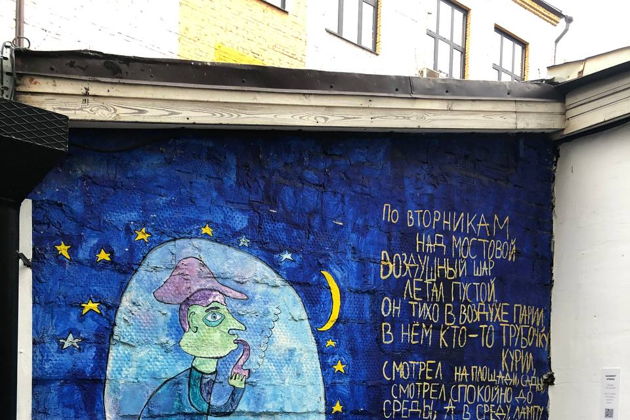 ПО ВТОРНИКАМ
НАД МОСТОВОЙ
ВОЗДУШНЫЙ ШАР
ЛЕТАЛ ПУСТОЙ.
ОН ТИХО В ВОЗДУХЕ ПАРИЛ
В НЁМ КТО-ТО ТРУБОЧКУ
КУРИЛ,
СМОТРЕЛ НА ПЛОЩАДИ, САДЫ,
СМОТРЕЛ СПОКОЙНО ДО
СРЕДЫ, А В СРЕДУ, ЛАМПУ